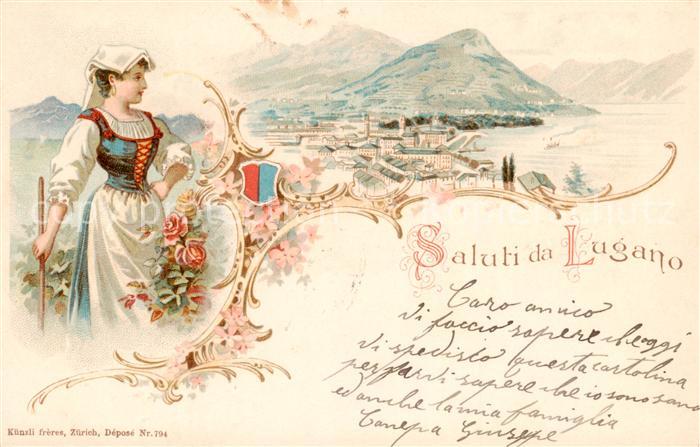 Saluti da Lugano
Caro amico
Vi faccio sapere che oggi
Vi spedisco questa cartolina
per farvi sapere che io sono sano
ed anche la mia famiglia
Canepa Giuseppe
Künzli frères, Zürich, Déposé Nr. 794